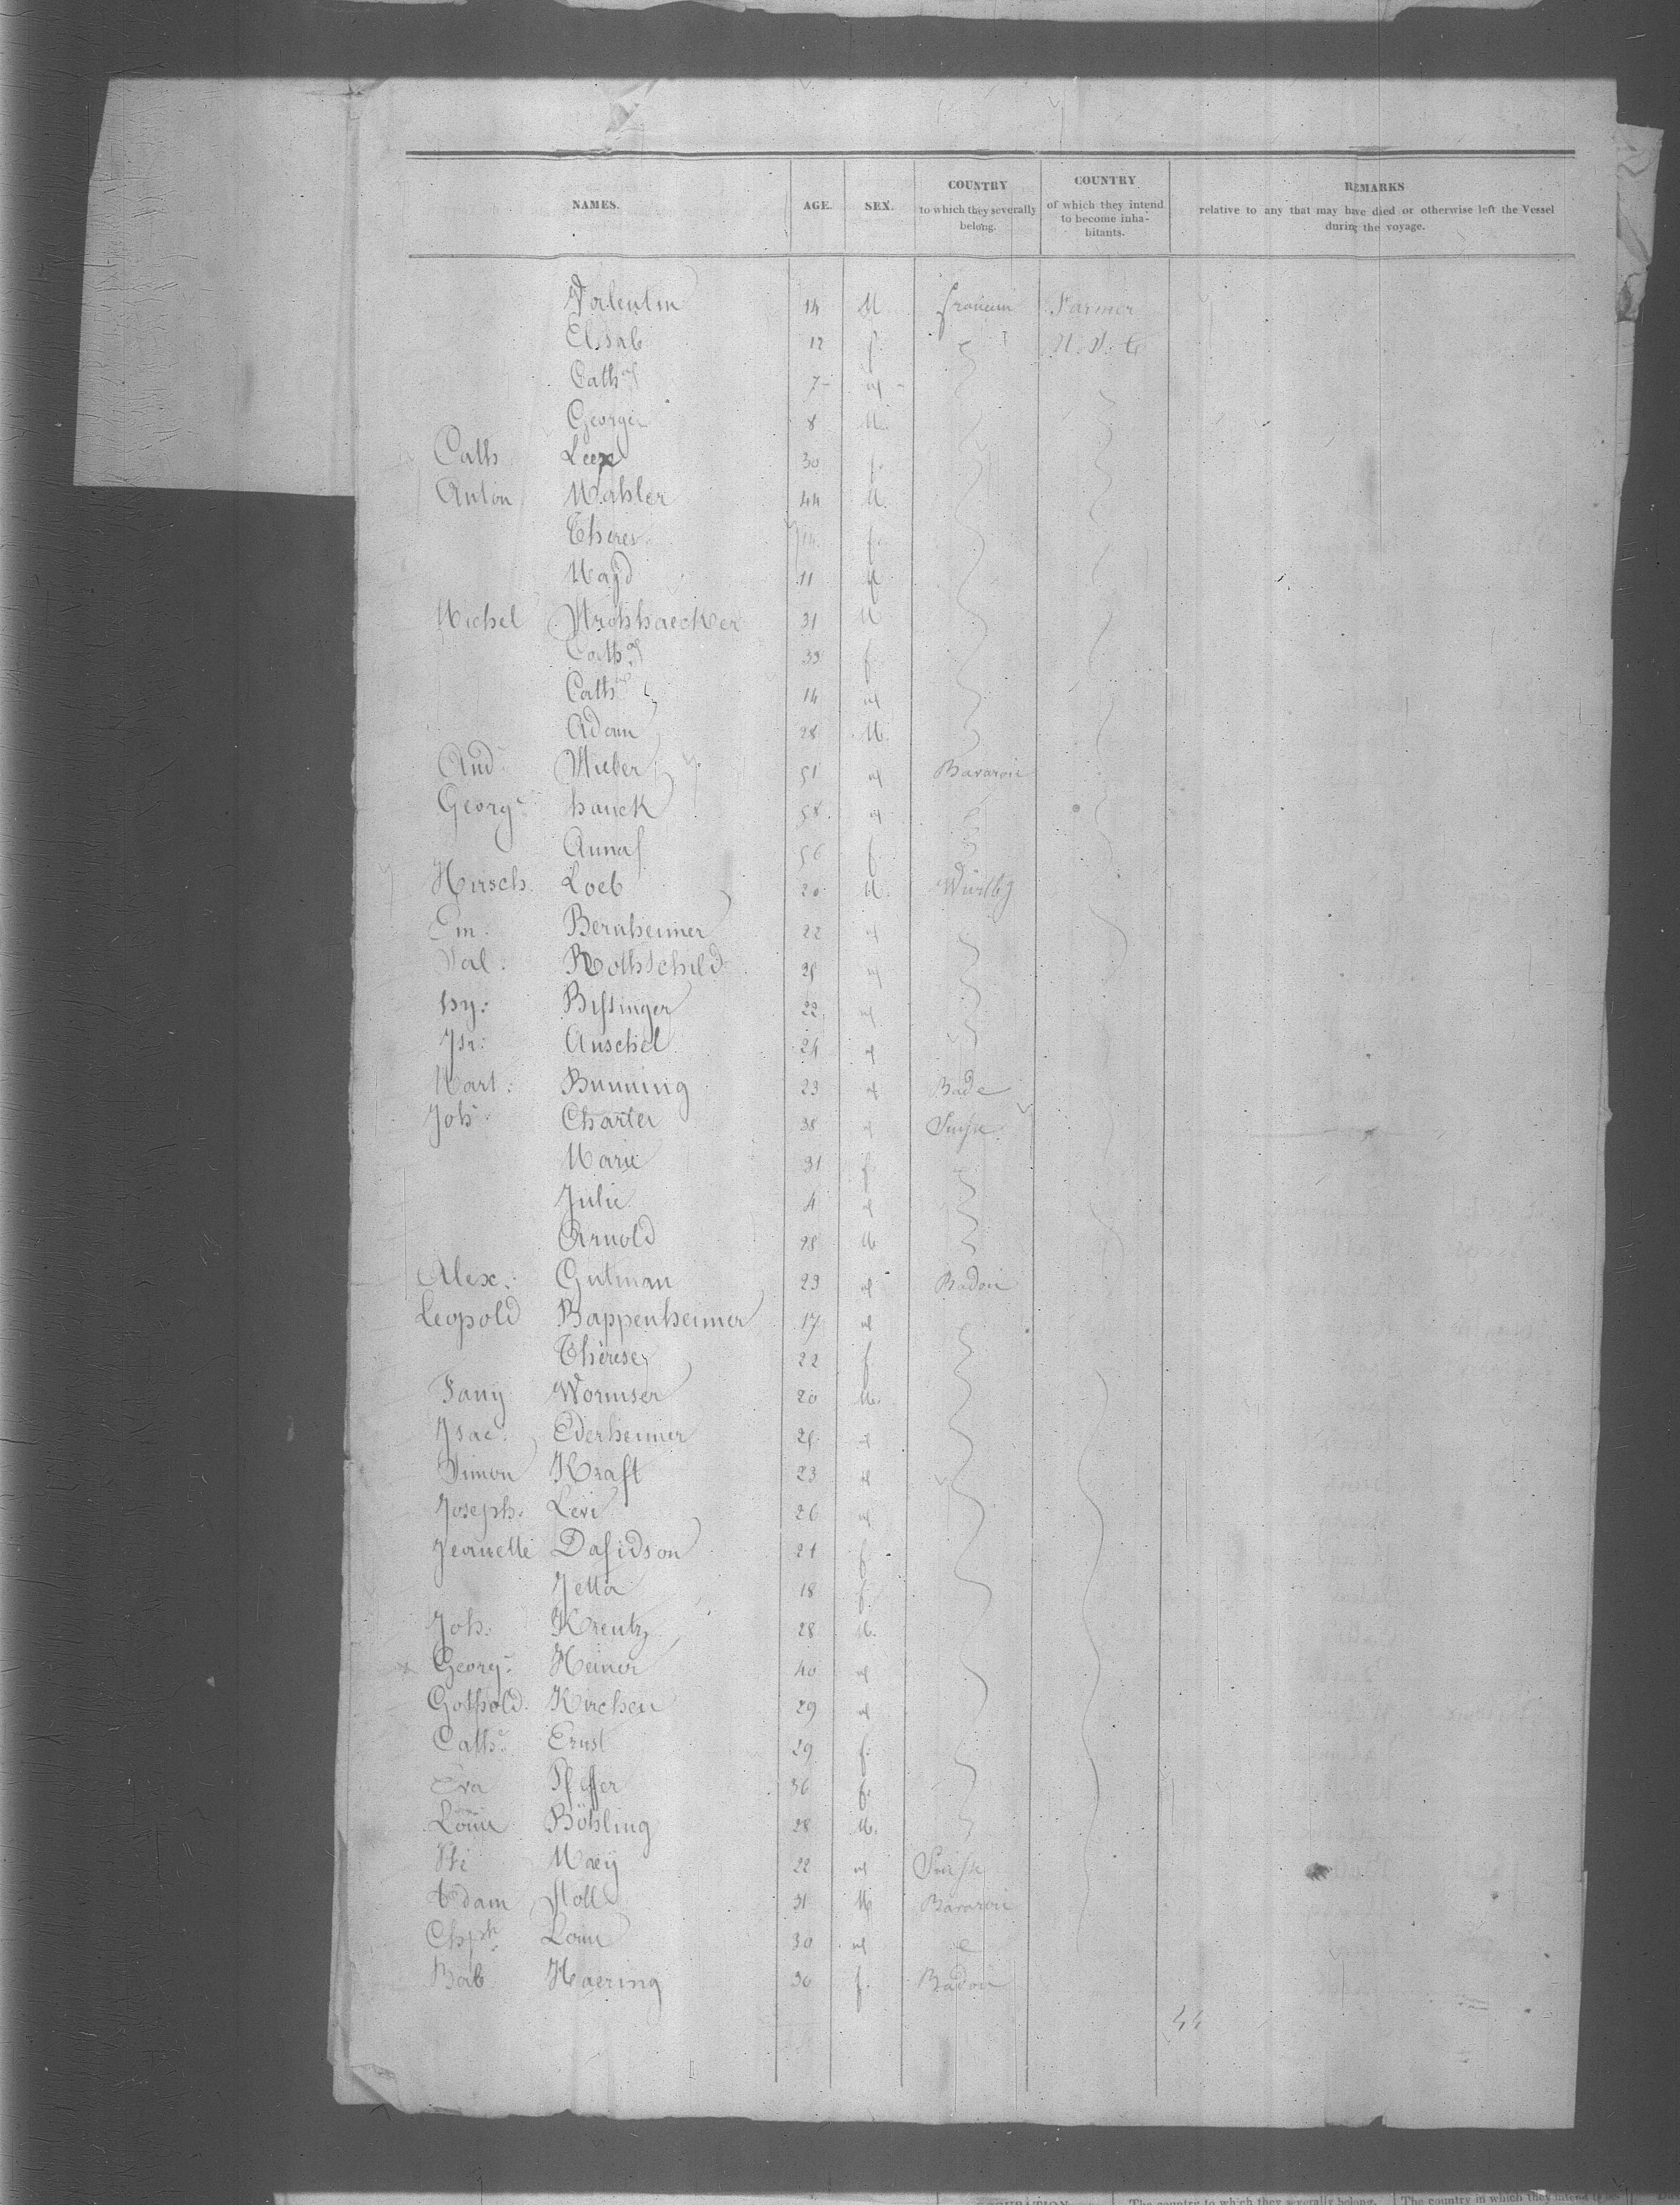 NAMES. AGE. SEX. COUNTRY to which they severally belong. COUNTRY of which they intend to become inhabitants. REMARKS relative to any that may have died or otherwise left the Vessel during the voyage.
Valentin 14 M Farmer
Elisab 12 f U.S.
Cath 7
George 8 M
Cath 30 f.
Anton Mahler 44 M.
Theres 14 f.
Magd 11
Michel Strohhaecker 31 M
Cath 33 f
Cath 14
Adam 28 M.
And Weber 51 Bavaroie
Georg Hauck 58
Anna 56 f
Hirsch Loeb 20 M. Würtbg
Em. Bernheimer 22
Sal. Rothschild 25
Hy: Bissinger 22
Isr: Anschel 24
Mart. Bruning 23 Bade
Joh. Charter 38 Suisse
Marie 31 f
Julie 4
Arnold 28 M
Alex. Gutman 23 Badois
Leopold Bappenheimer 17
Thérese 22 f
Fany Wormser 20 M.
Isac. Ederheimer 25
Simon Kraft 23
Joseph. Levi 26
Jeanette Dafidson 21 f
Jetta 18 f.
Joh. Kreutz 28 M.
Georg. Heiner 40
Gothold. Kirchen 29
Cath. Ernst 29 f.
Eva Pfeffer 36 f.
Louis Böhling 28 M.
Mary 22 Suisse
Adam Stoll 31 M Bavaroie
Chph Louis 30
Bab Haering 30 f. Badois
44
OCCUPATION The country to which they severally belong. The country in which they intend to